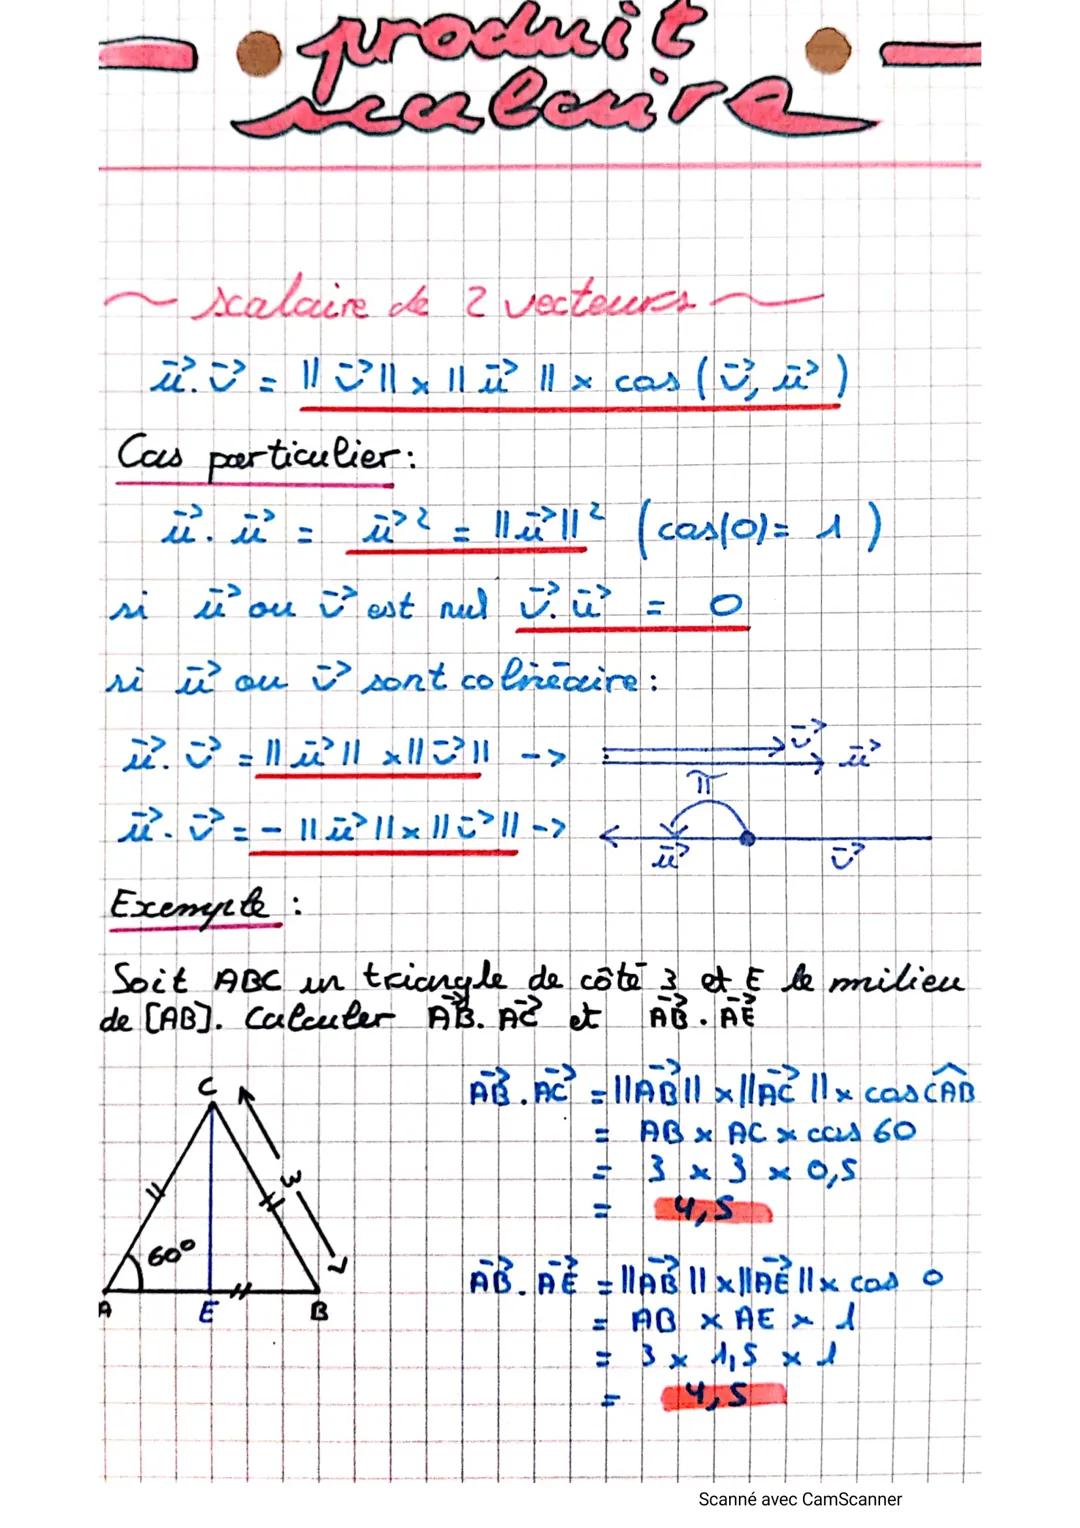 produit
scalaire
~ scalaire de 2 vecteurs ~
u⃗. v⃗ = ||v⃗|| x ||u⃗|| x cos (v⃗, u⃗)
Cas particulier:
u⃗. u⃗ = u⃗² = ||u⃗||² (cos(0)= 1)
si u⃗ ou v⃗ est nul v⃗. u⃗ = 0
si u⃗ ou v⃗ sont colinéaire :
u⃗. v⃗ = ||u⃗|| x ||v⃗|| -> v⃗ u⃗
π
u⃗. v⃗ = - ||u⃗|| x ||v⃗|| -> u⃗ v⃗
Exemple :
Soit ABC un triangle de côté 3 et E le milieu
de [AB]. Calculer AB⃗. AC⃗ et AB⃗. AE⃗
C
3
60°
A E B
AB⃗. AC⃗ = ||AB⃗|| x ||AC⃗|| x cos CAB̂
= AB x AC x cos 60
= 3 x 3 x 0,5
= 4,5
AB⃗. AE⃗ = ||AB⃗|| x ||AE⃗|| x cos 0
= AB x AE x 1
= 3 x 1,5 x 1
= 4,5
Scanné avec CamScanner